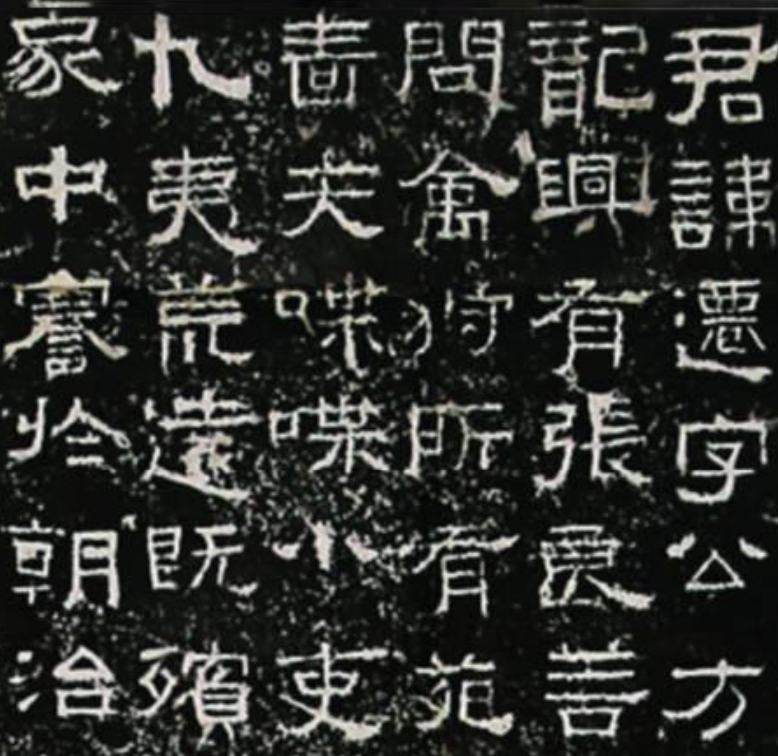 君諱遷字公方
龍興有張良善
問禽狩所有苑
嗇夫喋喋小吏
九夷荒遠既殯
家中謇於朝治